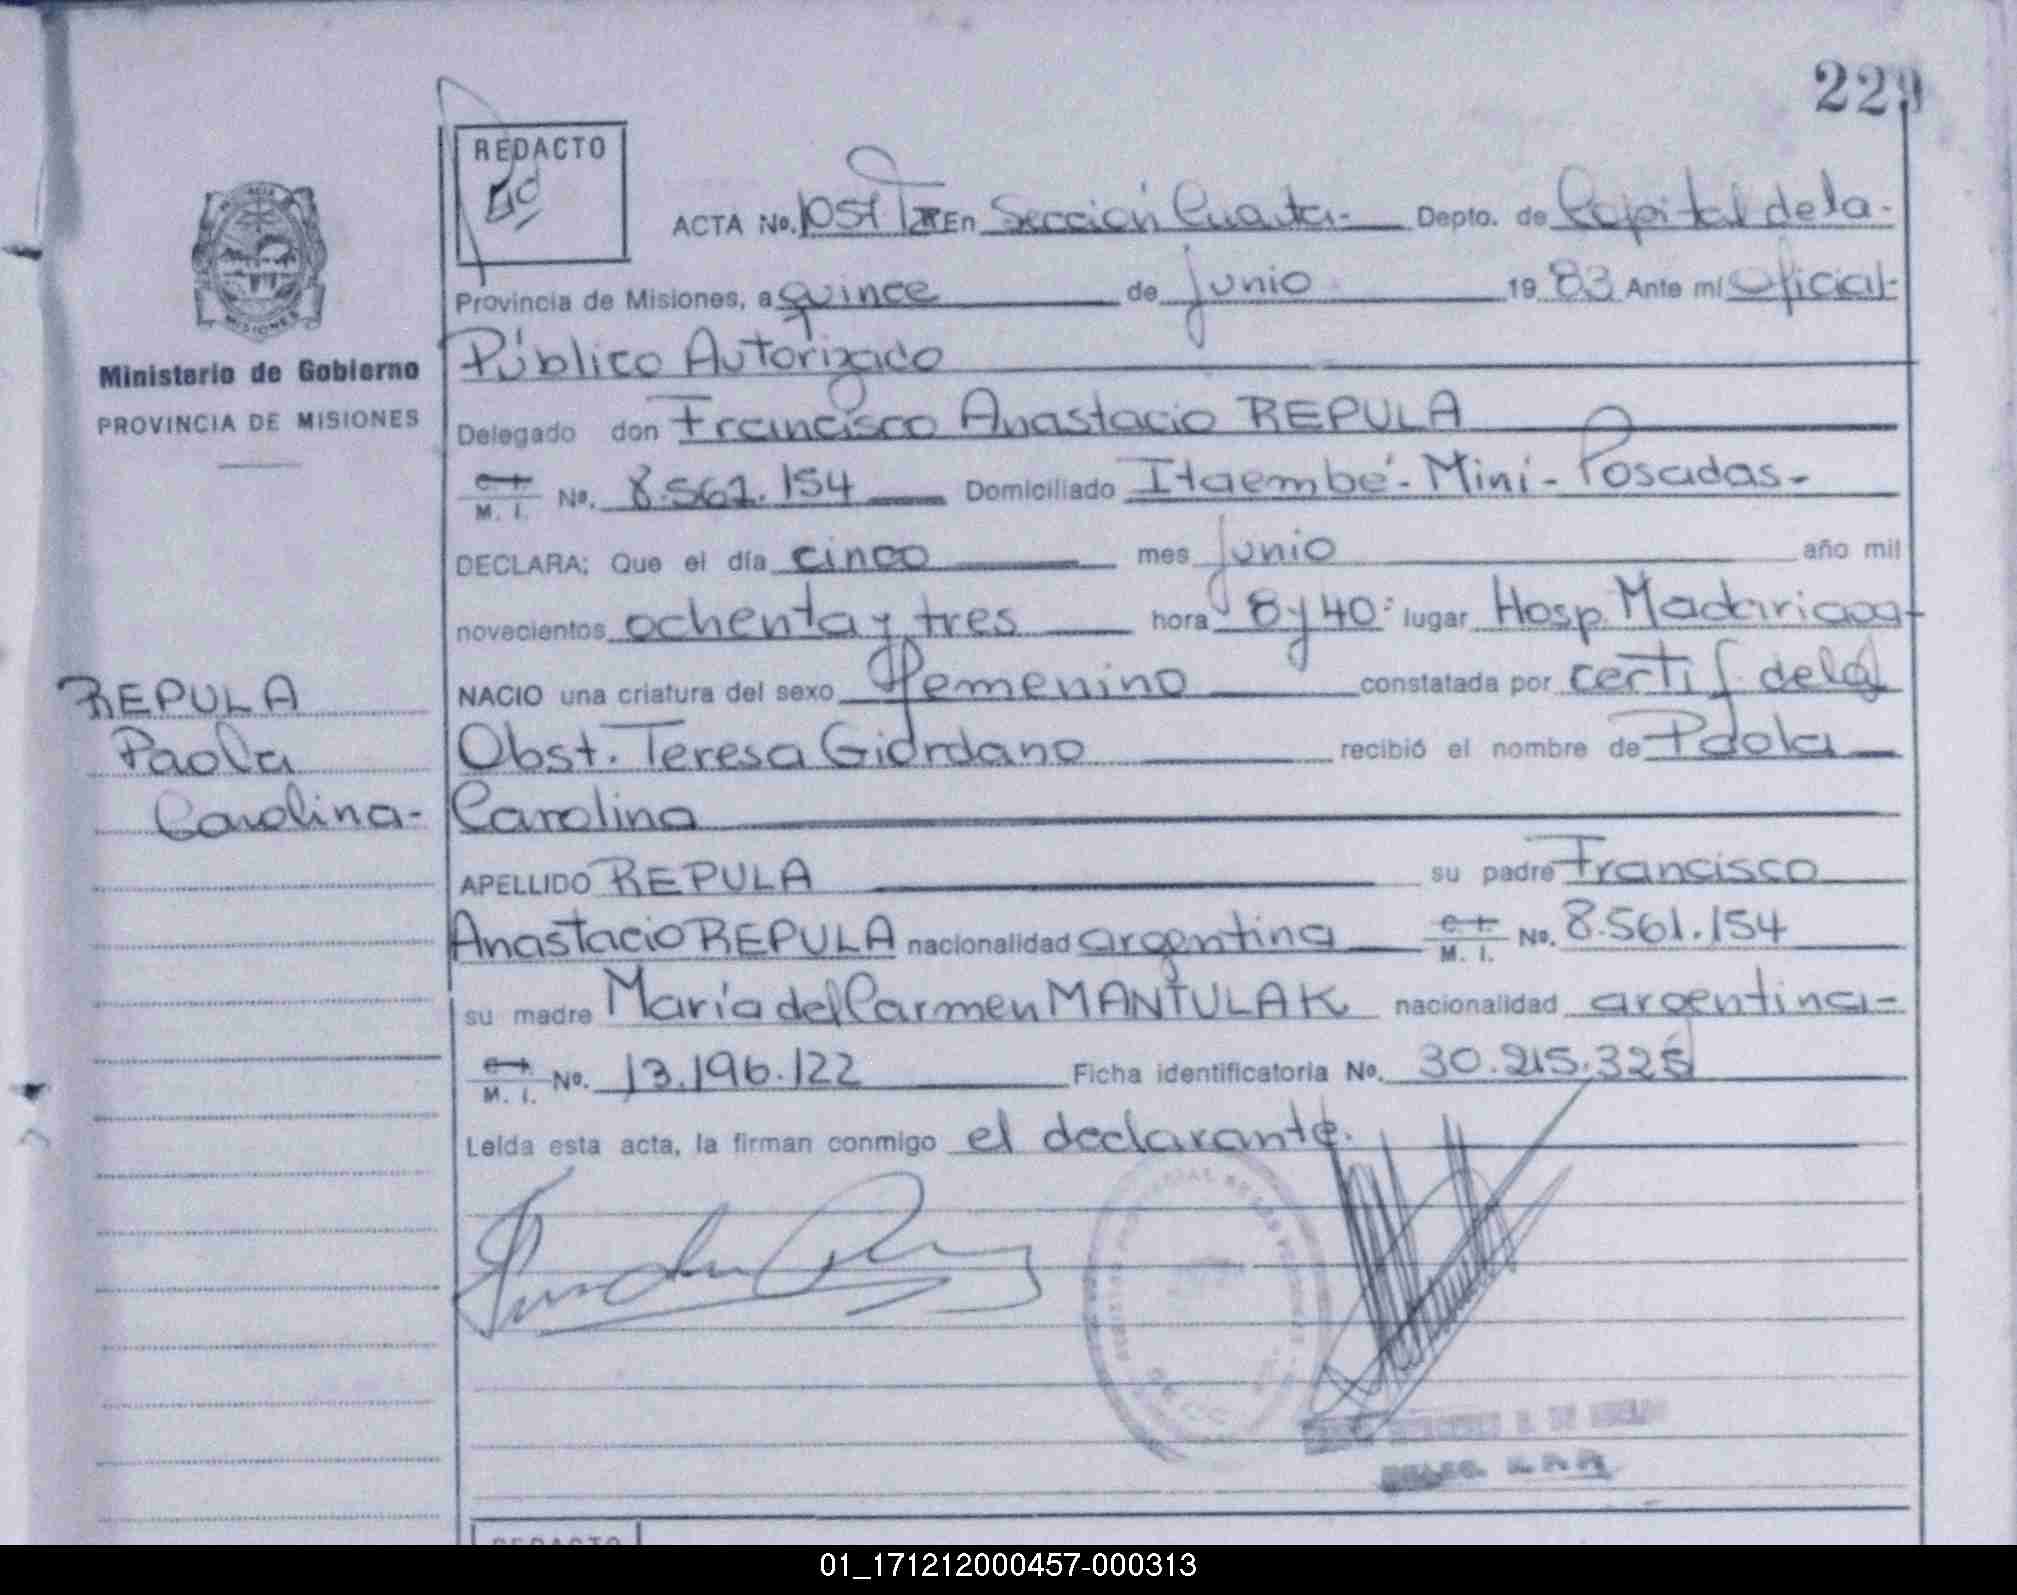 229
REDACTO
ACTA No. 1051 Tº II En Sección Cuarta- Depto. de Capital de la-
Provincia de Misiones, a quince de junio 1983 Ante mí Oficial-
Público Autorizado
Ministerio de Gobierno
PROVINCIA DE MISIONES
Delegado don Francisco Anastacio REPULA
C. I. M. I. No. 8.561.154 Domiciliado Itaembé-Mini-Posadas-
DECLARA: Que el día cinco mes junio año mil
novecientos ochenta y tres hora 8 y 40- lugar Hosp. Madariaga-
NACIO una criatura del sexo femenino constatada por certif. de la
Obst. Teresa Giordano recibió el nombre de Paola
Carolina
REPULA
Paola
Carolina-
APELLIDO REPULA su padre Francisco
Anastacio REPULA nacionalidad argentina C. I. M. I. No. 8.561.154
su madre María del Carmen MANTULAK nacionalidad argentina-
C. I. M. I. No. 13.196.122 Ficha identificatoria No. 30.215.325
Leída esta acta, la firman conmigo el declarante.
REDACTO
01_171212000457-000313